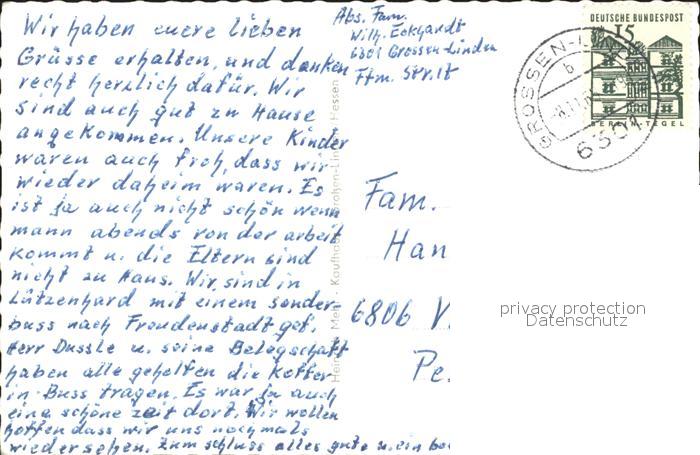 Wir haben euere lieben
Grüsse erhalten, und danken
recht herzlich dafür. Wir
sind auch gut zu Hause
angekommen. Unsere Kinder
waren auch froh, dass wir
wieder daheim waren. Es
ist ja auch nicht schön wenn
mann abends von der arbeit
kommt u. die Eltern sind
nicht zu Haus. Wir sind in
Lützenhard mit einem sonder-
buss nach Freudenstadt gef.
Herr Dussle u. seine Belegschaft
haben alle geholfen die Koffer
in Buss tragen. Es war ja auch
eine schöne zeit dort. Wir wollen
hoffen dass wir uns nochmals
wiedersehen. Zum schluss alles gute u. ein
Abs. Fam.
Wilh. Eckhardt
6301 Grossen-Linden
Ffm. Str. 18
Fam.
Han
6806 V
Pe.
DEUTSCHE BUNDESPOST
15
BERLIN-TEGEL
GROSSEN-LINDEN
b
6301
Kaufhaus Großen-Linden Hessen
privacy protection
Datenschutz